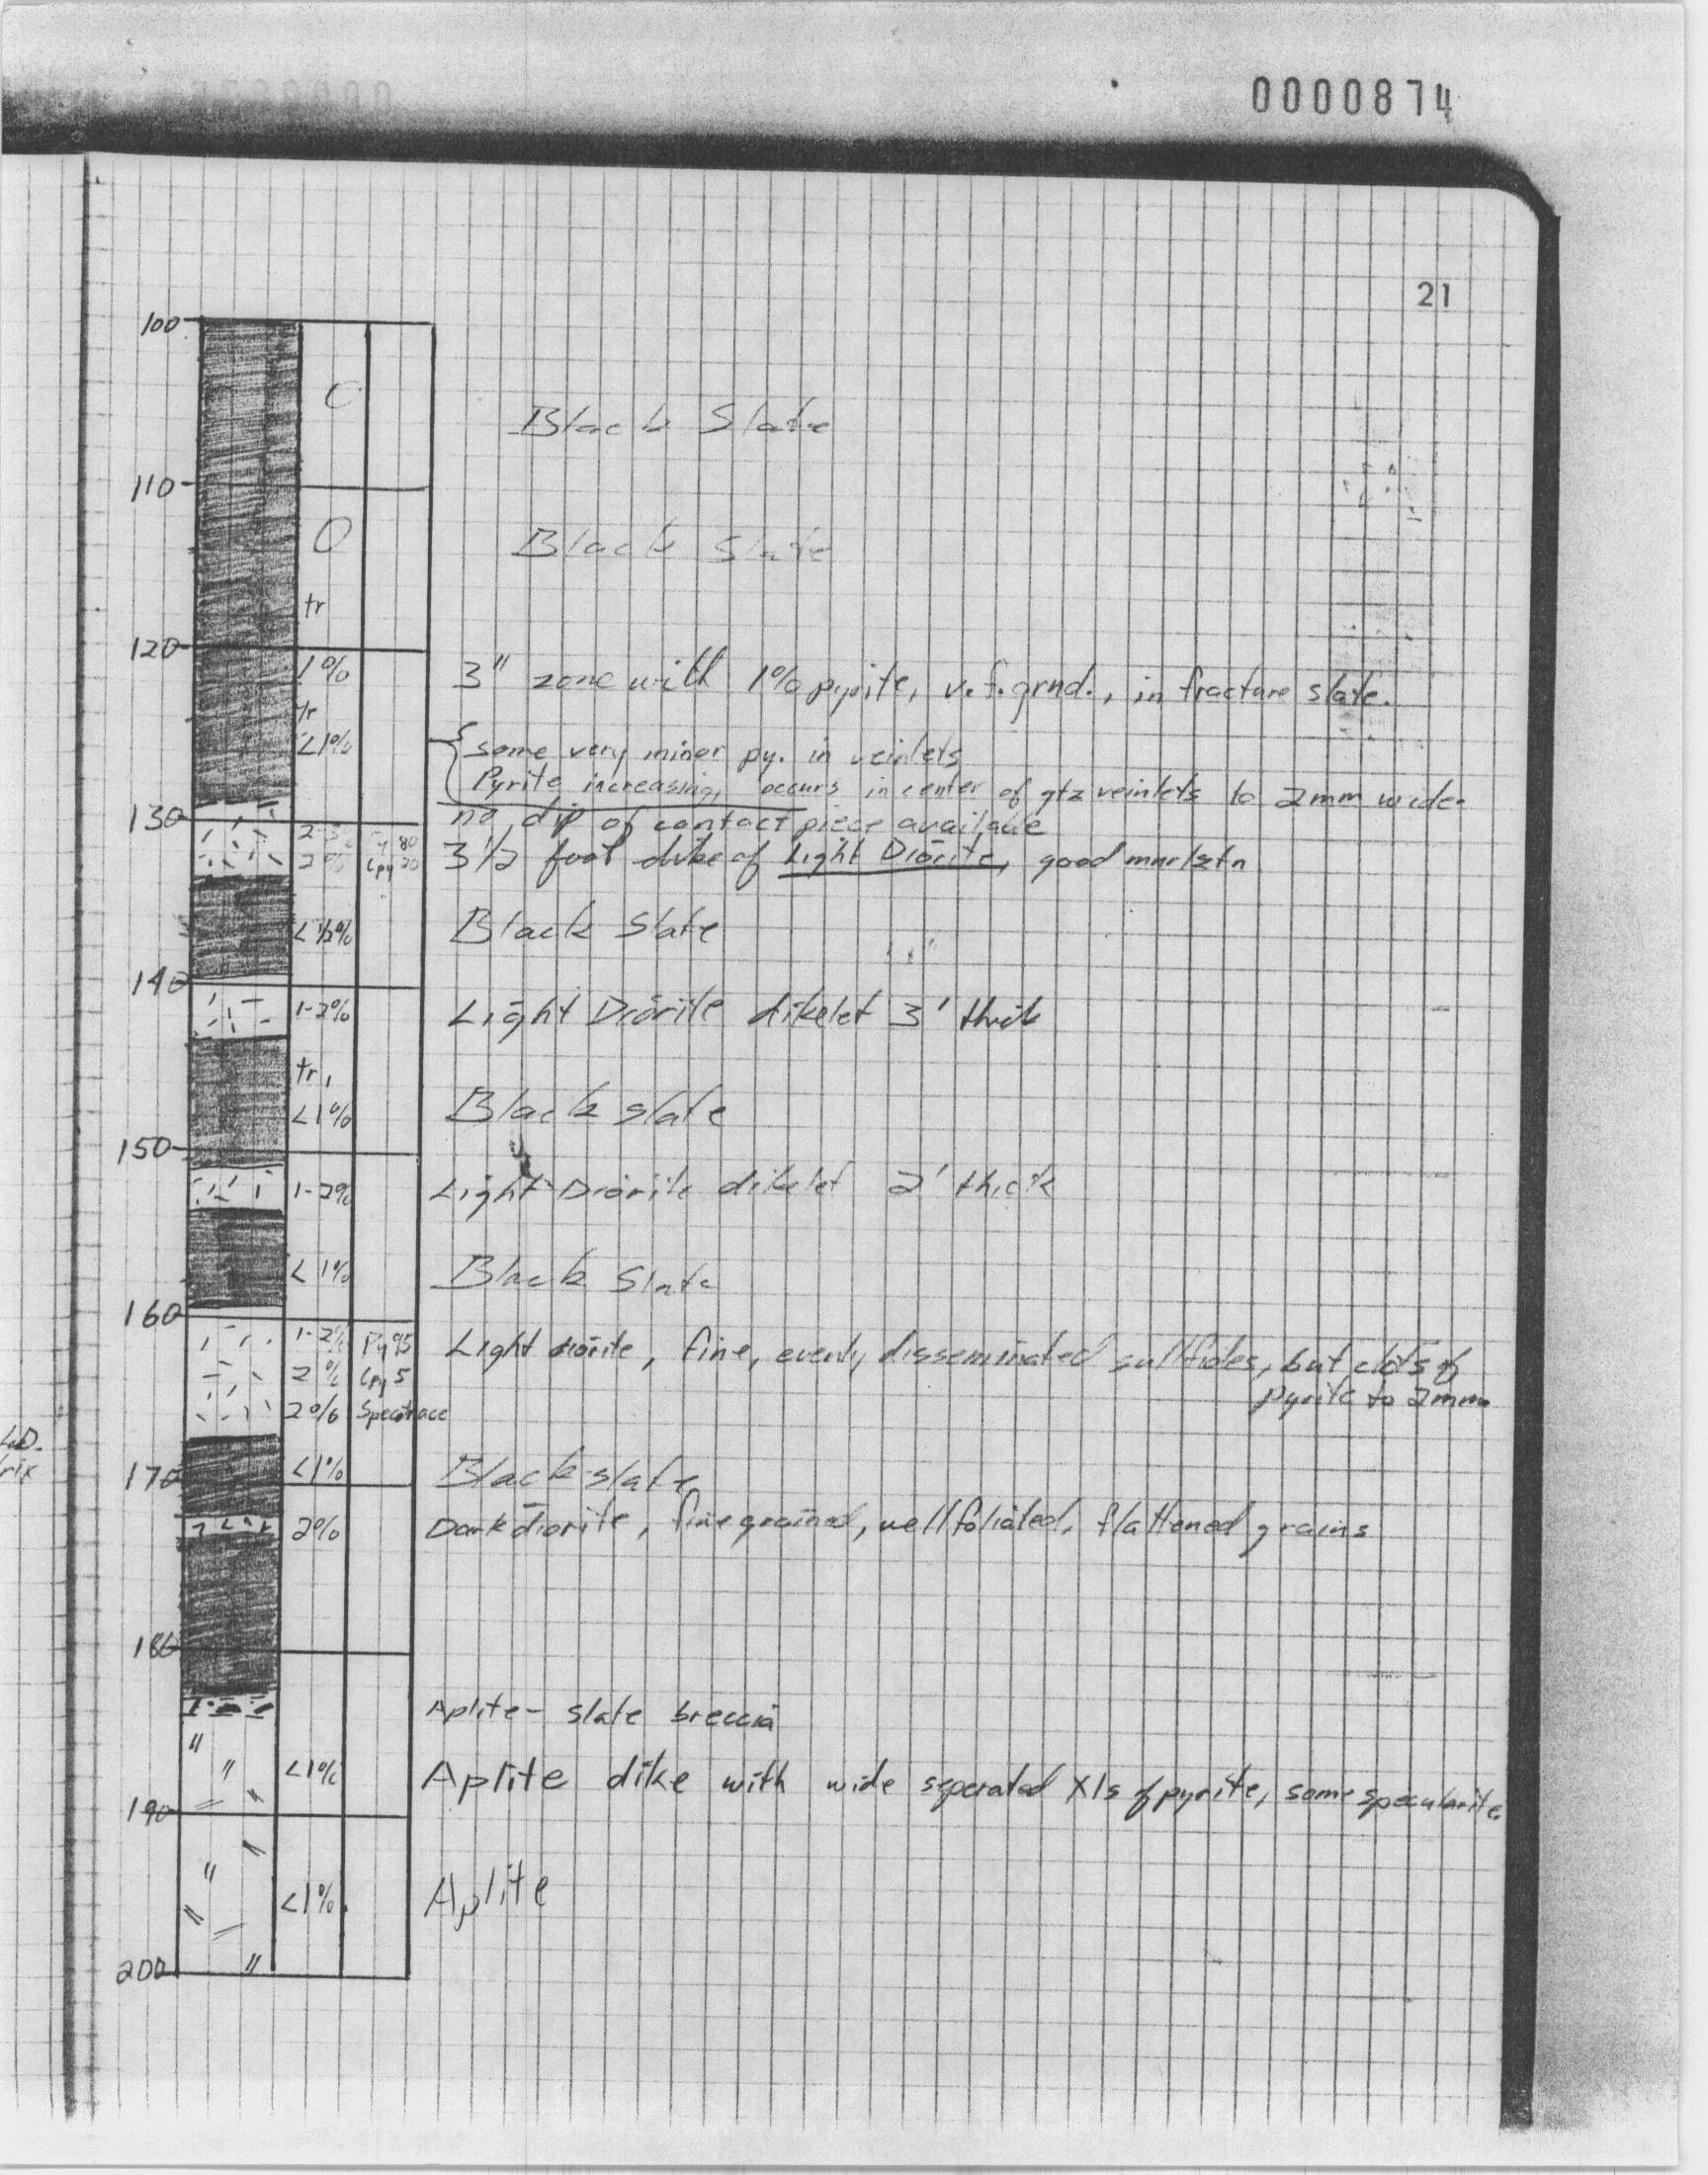 0000874
21
100
Black Slate
110
O
Black Slate
tr
120
1%
3" zone with 1% pyrite, v.f.grnd., in fracture slate.
tr
<1%
some very minor py. in veinlets
Pyrite increasing, occurs in center of qtz veinlets to 2mm wide.
130
no dip of contact piece available
80
2% Cpy 20
3 1/2 foot dike of Light Diorite, good mnrlztn
<1/2%
Black Slate
140
1-2%
Light Diorite dikelet 3' thick
tr,
<1%
Black slate
150
1-2%
Light Diorite dikelet 2' thick
<1%
Black Slate
160
1-2% Py 95
Light diorite, fine, evenly disseminated sulfides, but clots of
pyrite to 2mm
2% Cpy 5
2% Spec trace
170
<1%
Black slate
2%
Dark diorite, fine grained, well foliated, flattened grains
180
Aplite - slate breccia
<1%
Aplite dike with wide seperated Xls of pyrite, some specularite.
190
<1%
Aplite
200